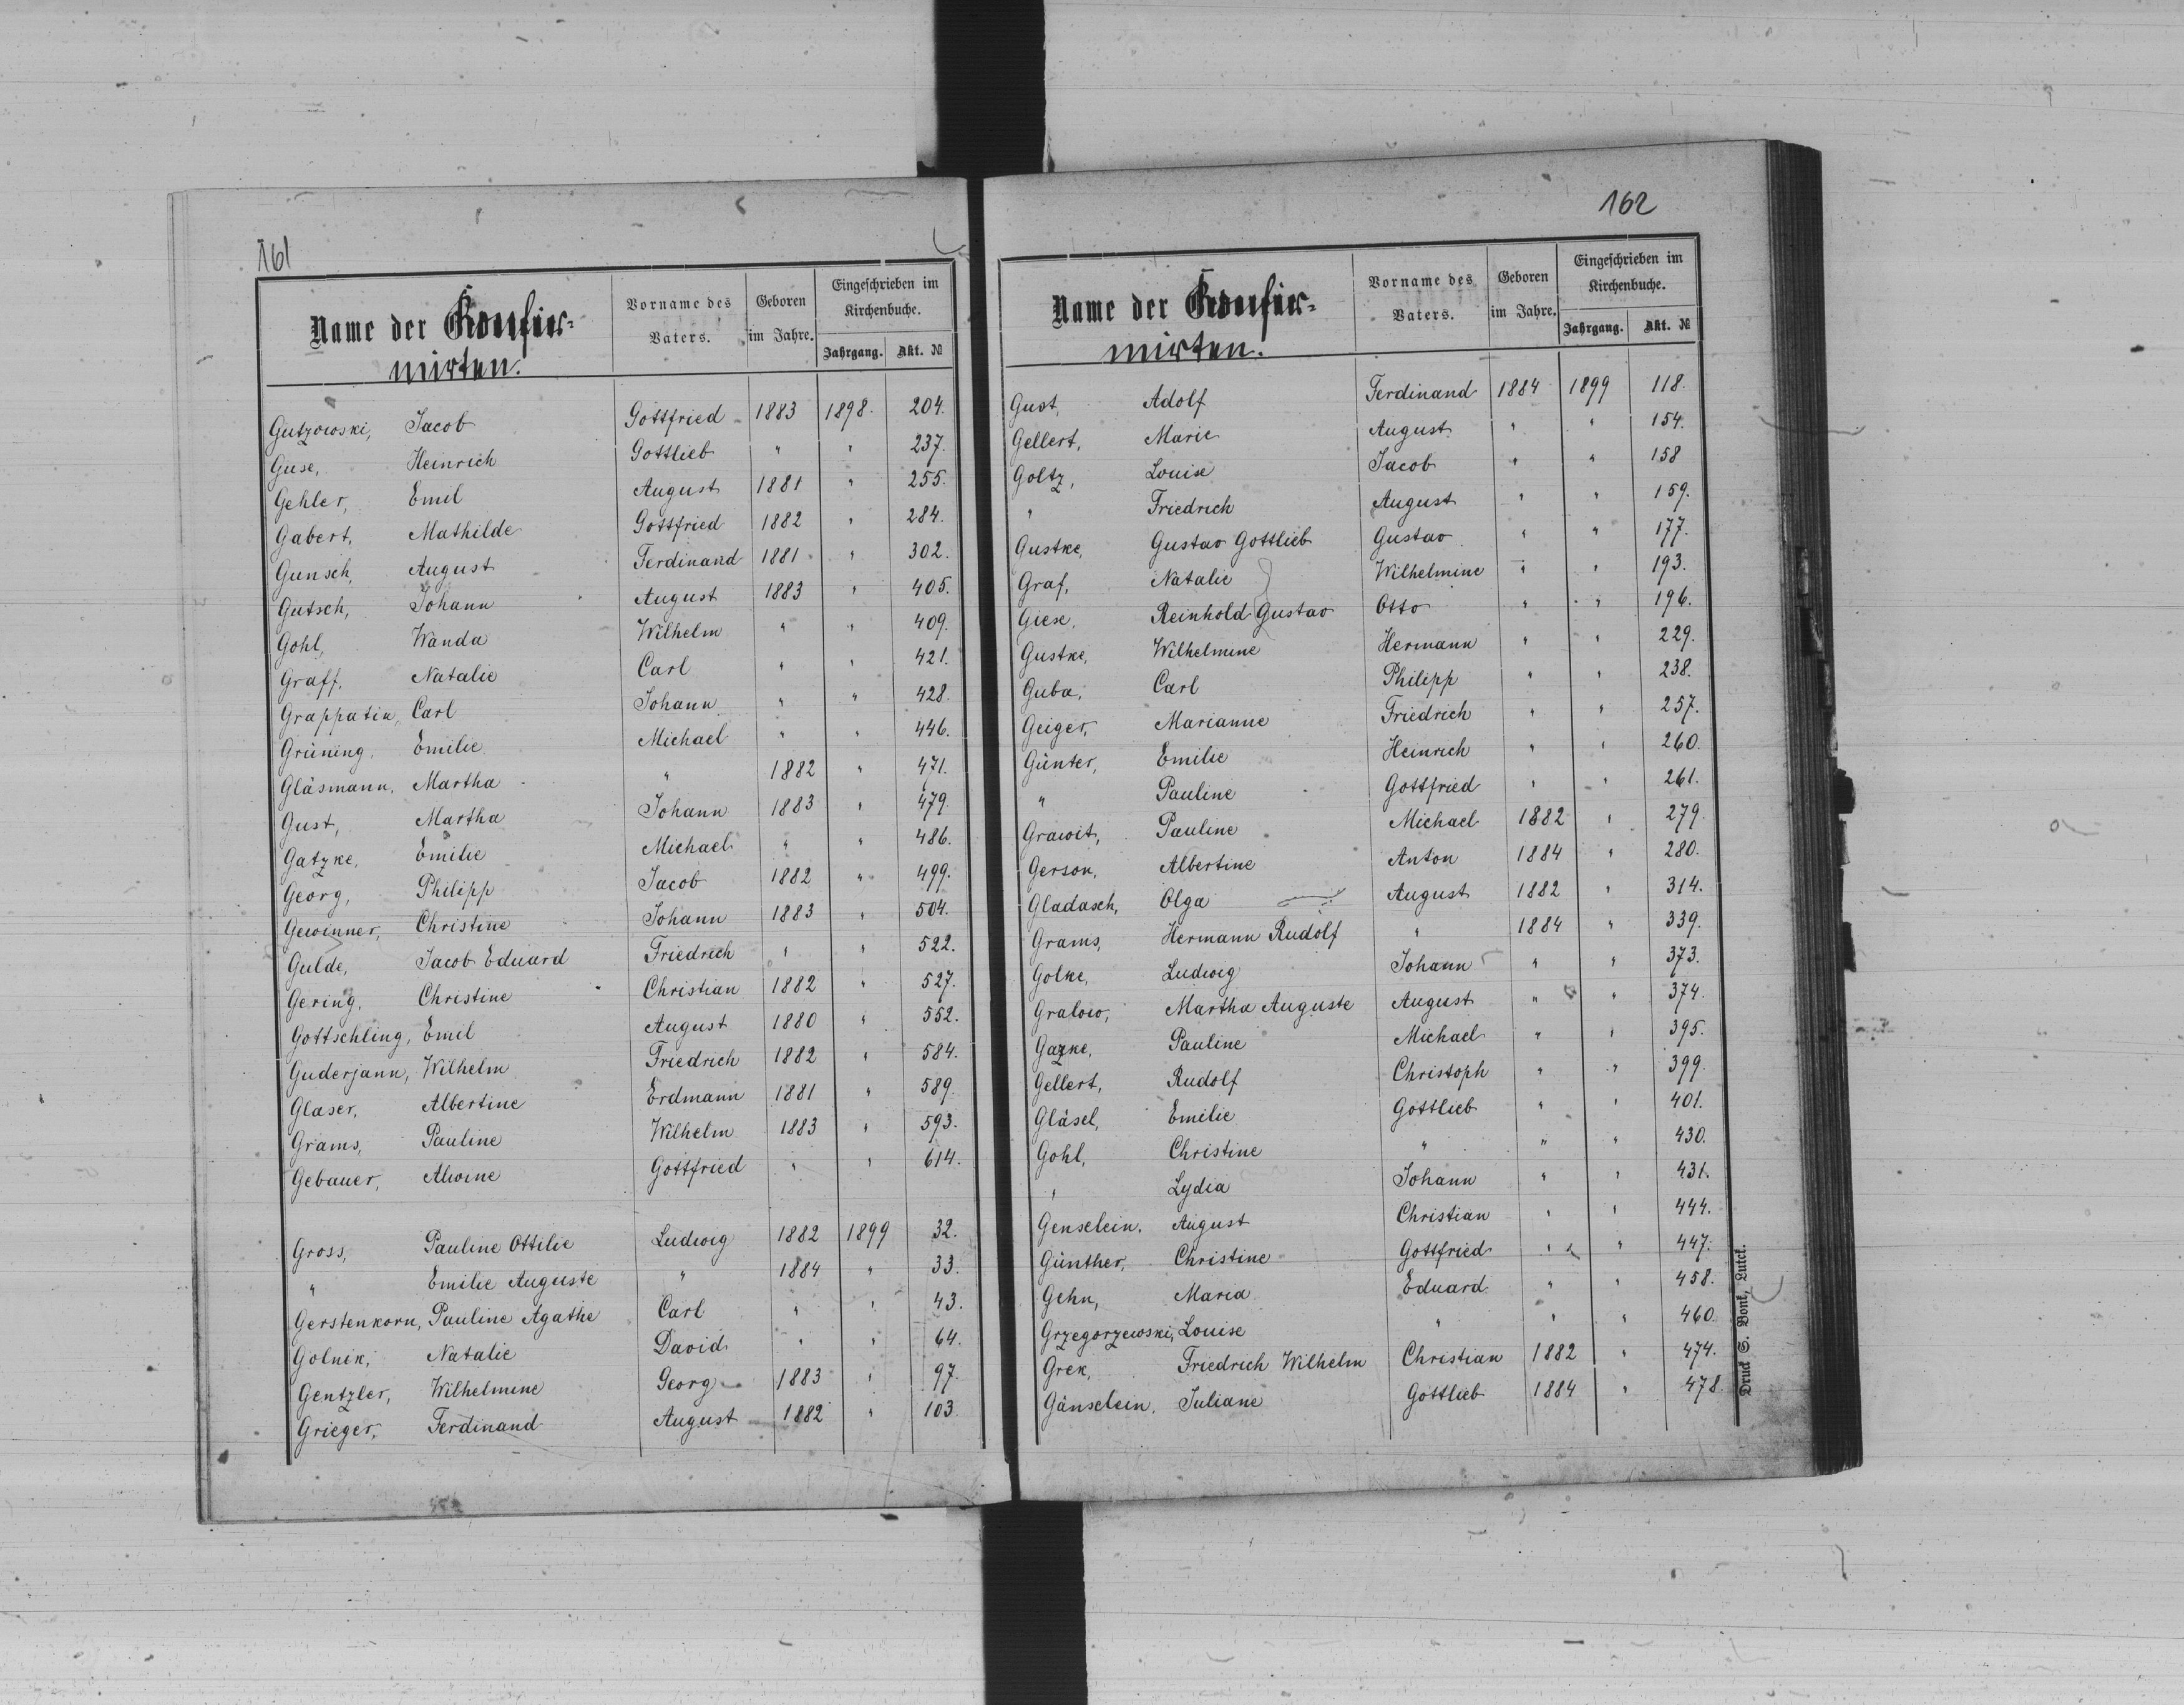 161
Name der Konfir-
mirten.
Vorname des Vaters.
Geboren im Jahre.
Eingeschrieben im Kirchenbuche.
Jahrgang. Akt. №
Gutzowski, Jacob Gottfried 1883 1898. 204.
Guse, Heinrich Gottlieb " " 237.
Gehler, Emil August 1881 " 255.
Gabert, Mathilde Gottfried 1882 " 284.
Gunsch, August Ferdinand 1881 " 302.
Gutsch, Johann August 1883 " 405.
Gohl, Wanda Wilhelm " " 409.
Graff, Natalie Carl " " 421.
Grappatin, Carl Johann " " 428.
Grüning, Emilie Michael " " 446.
Gläsmann, Martha " 1882 " 471.
Gust, Martha Johann 1883 " 479.
Gatzke, Emilie Michael " " 486.
Georg, Philipp Jacob 1882 " 499.
Gewinner, Christine Johann 1883 " 504.
Gulde, Jacob Eduard Friedrich " " 522.
Gering, Christine Christian 1882 " 527.
Gottschling, Emil August 1880 " 552.
Guderjann, Wilhelm Friedrich 1882 " 584.
Glaser, Albertine Erdmann 1881 " 589.
Grams, Pauline Wilhelm 1883 " 593.
Gebauer, Alwine Gottfried " " 614.
Gross, Pauline Ottilie Ludwig 1882 1899 32.
" Emilie Auguste " 1884 " 33.
Gerstenkorn, Pauline Agathe Carl " " 43.
Golnik, Natalie David " " 64.
Gentzler, Wilhelmine Georg 1883 " 97.
Grieger, Ferdinand August 1882 " 103.
162
Name der Konfir-
mirten.
Vorname des Vaters.
Geboren im Jahre.
Eingeschrieben im Kirchenbuche.
Jahrgang. Akt. №
Gust, Adolf Ferdinand 1884 1899 118.
Gellert, Marie August " " 154.
Goltz, Louise Jacob " " 158
" Friedrich August " " 159.
Gustke, Gustav Gottlieb Gustav " " 177.
Graf, Natalie Wilhelmine " " 193.
Giese, Reinhold Gustav Otto " " 196.
Gustke, Wilhelmine Hermann " " 229.
Guba, Carl Philipp " " 238.
Geiger, Marianne Friedrich " " 257.
Günter, Emilie Heinrich " " 260.
" Pauline Gottfried " " 261.
Grawit, Pauline Michael 1882 " 279.
Gerson, Albertine Anton 1884 " 280.
Gladasch, Olga August 1882 " 314.
Grams, Hermann Rudolf " 1884 " 339.
Golke, Ludwig Johann " " 373.
Gralow, Martha Auguste August " " 374.
Gazke, Pauline Michael " " 395.
Gellert, Rudolf Christoph " " 399.
Gläsel, Emilie Gottlieb " " 401.
Gohl, Christine " " " 430.
" Lydia Johann " " 431.
Genselein, August Christian " " 444.
Günther, Christine Gottfried " " 447.
Gehn, Maria Eduard " " 458.
Grzegorzewski, Louise " " " 460.
Grek, Friedrich Wilhelm Christian 1882 " 474.
Gänselein, Juliane Gottlieb 1884 " 478.
Druck S. Bonk, Luck.